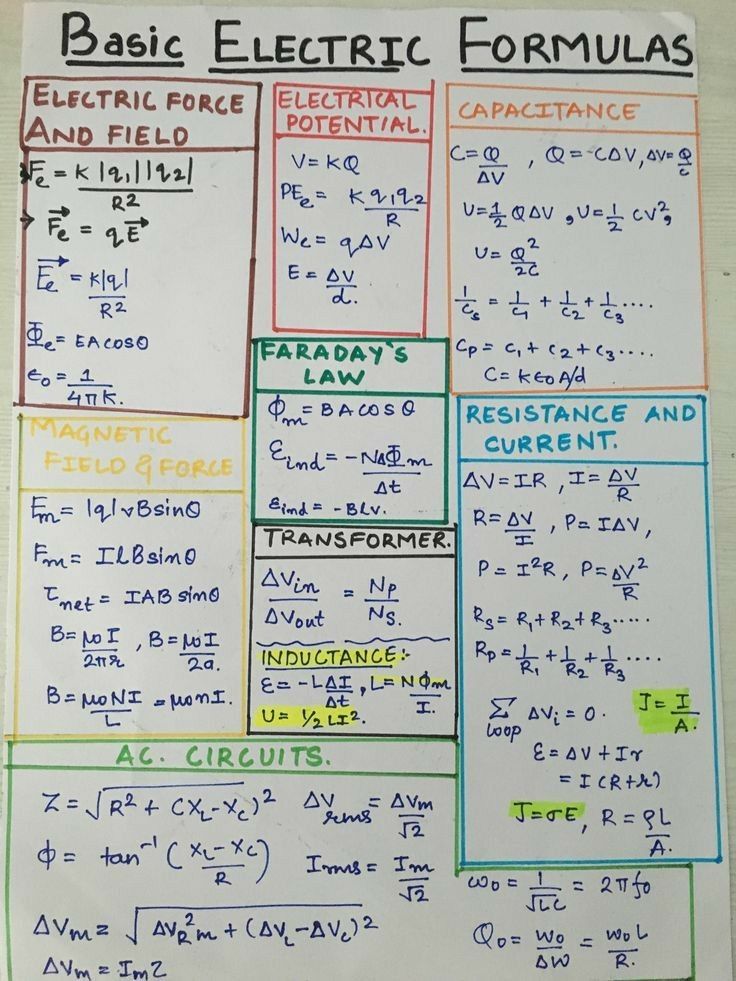 BASIC ELECTRIC FORMULAS
ELECTRIC FORCE
AND FIELD
Fe = K|q1||q2| / R²
→ F⃗e = qE⃗
E⃗e = K|q| / R²
Φe = EA cosθ
ε0 = 1 / 4πK.
ELECTRICAL
POTENTIAL.
V = KQ
PEe = K q1q2 / R
We = qΔV
E = ΔV / d.
CAPACITANCE
C = Q/ΔV , Q = CΔV, ΔV = Q/C
U = 1/2 QΔV , U = 1/2 CV²,
U = Q²/2C
1/Cs = 1/C1 + 1/C2 + 1/C3 ....
Cp = C1 + C2 + C3 ....
C = Kε0A/d
FARADAY'S
LAW
Φm = BA cosθ
εind = -NΔΦm / Δt
εind = -BLv.
MAGNETIC
FIELD & FORCE
Fm = |q|vB sinθ
Fm = ILB sinθ
τnet = IAB sinθ
B = μ0I / 2πr , B = μ0I / 2a.
B = μ0NI / L = μ0nI.
TRANSFORMER.
ΔVin / ΔVout = Np / Ns.
INDUCTANCE:-
ε = -LΔI / Δt , L = NΦm / I.
U = 1/2 LI².
RESISTANCE AND
CURRENT.
ΔV = IR , I = ΔV/R
R = ΔV/I , P = IΔV,
P = I²R , P = ΔV²/R
Rs = R1 + R2 + R3 .....
Rp = 1/R1 + 1/R2 + 1/R3 ....
Σloop ΔVi = 0. J = I/A.
ε = ΔV + Ir
= I(R+r)
J = σE, R = ρL/A.
AC. CIRCUITS.
Z = √R² + (XL-XC)² ΔVrms = ΔVm / √2
φ = tan⁻¹ (XL-XC / R) Irms = Im / √2
ΔVm = √ΔVR²m + (ΔVL-ΔVC)²
ΔVm = ImZ
ω0 = 1/√LC = 2πf0
Q0 = ω0/Δω = ω0L/R.